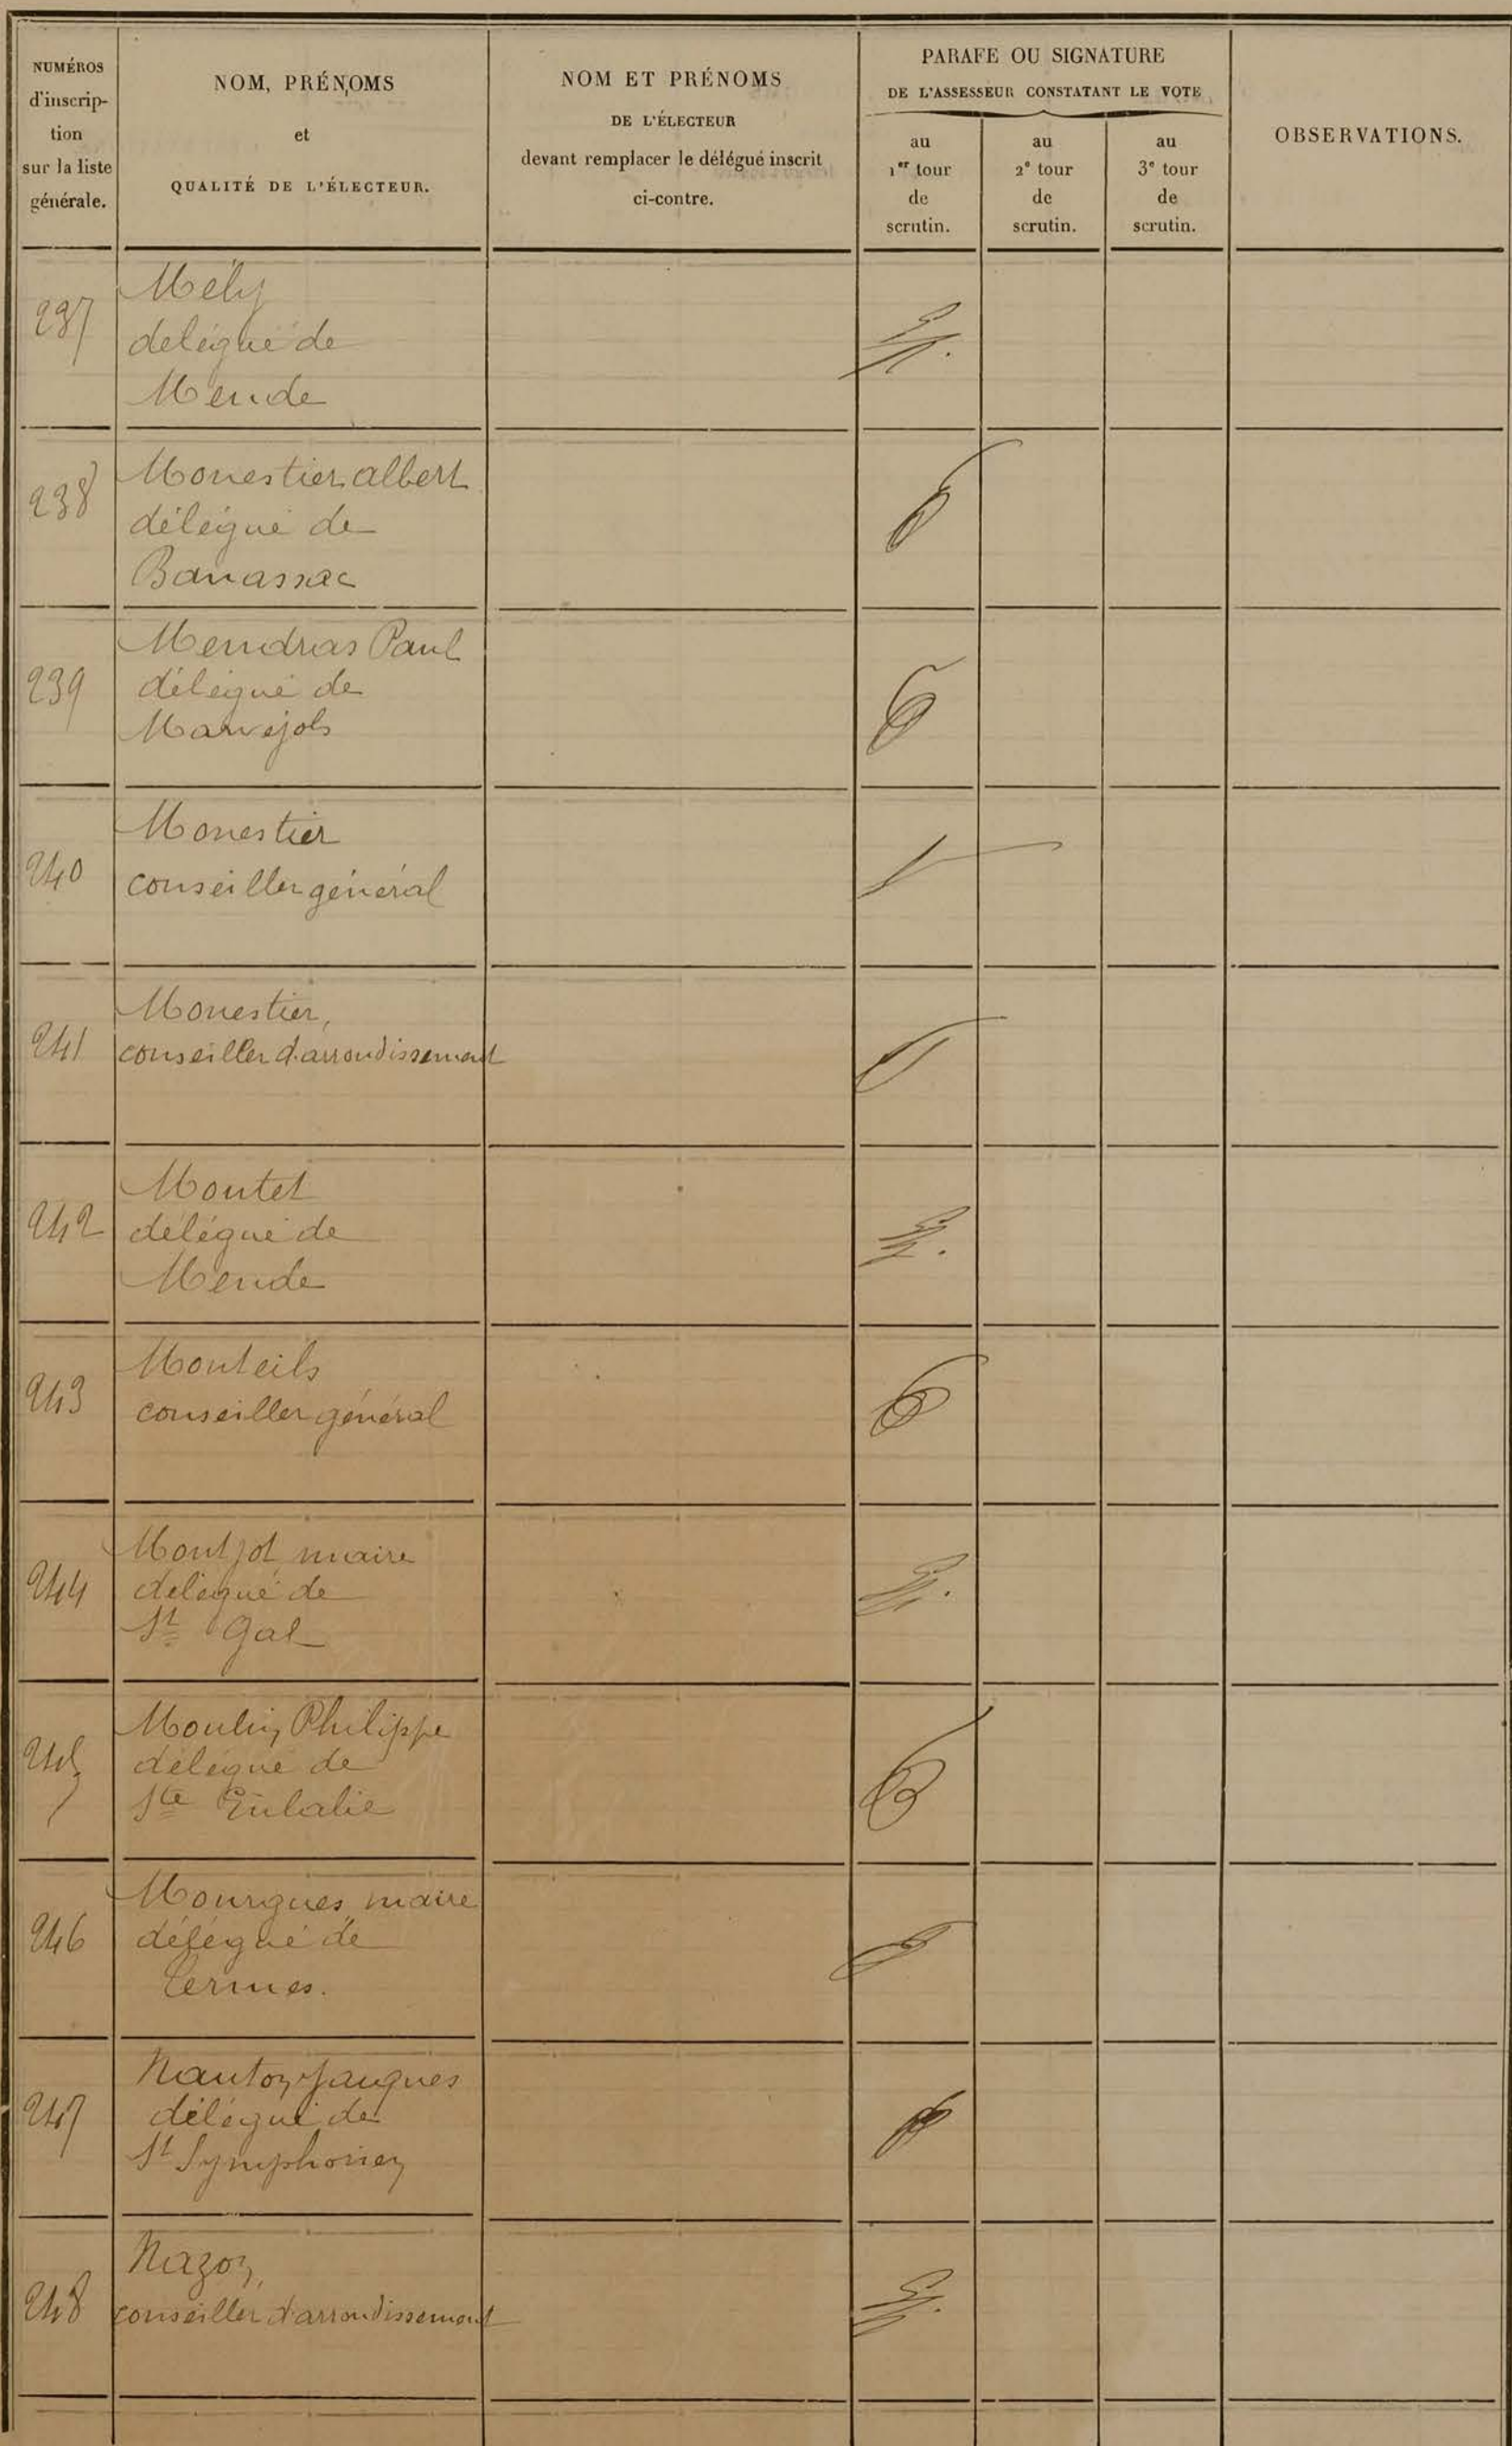 NUMÉROS
d'inscrip-
tion
sur la liste
générale.
NOM, PRÉNOMS
et
QUALITÉ DE L'ÉLECTEUR.
NOM ET PRÉNOMS
DE L'ÉLECTEUR
devant remplacer le délégué inscrit
ci-contre.
PARAFE OU SIGNATURE
DE L'ASSESSEUR CONSTATANT LE VOTE
au
1er tour
de
scrutin.
au
2e tour
de
scrutin.
au
3e tour
de
scrutin.
OBSERVATIONS.
237
Mély
délégué de
Mende
238
Monestier albert
délégué de
Banassac
239
Mendras Paul
délégué de
Marvejols
240
Monestier
conseiller général
241
Monestier,
conseiller d'arrondissement
242
Montet
délégué de
Mende
243
Monteils
conseiller général
244
Montjot, maire
délégué de
St Gal
245
Moulin Philippe
délégué de
Ste Eulalie
246
Mourgues, maire
délégué de
Termes.
247
Nauton Jauques
délégué de
St Symphorien
248
Nazon,
conseiller d'arrondissement